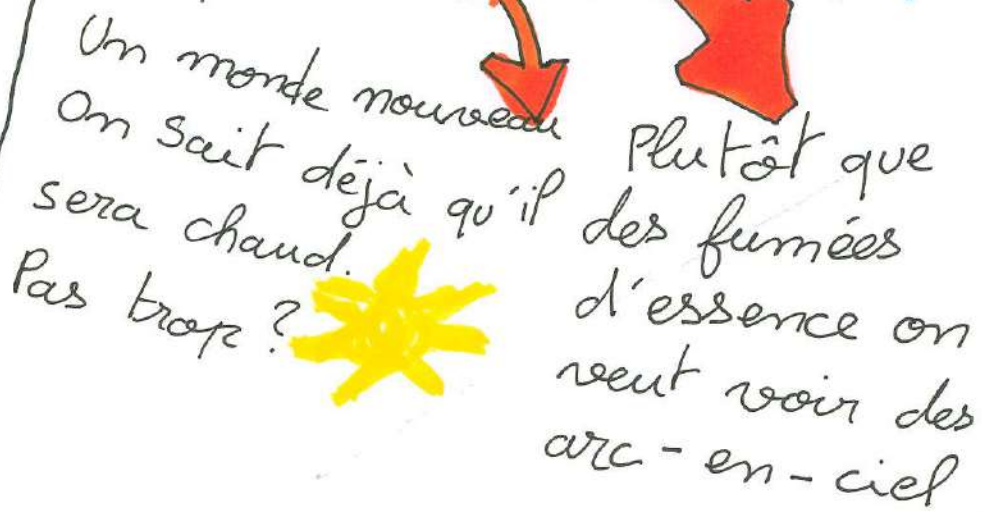 Un monde nouveau
On sait déjà qu'il
sera chaud.
Pas trop ?
Plutôt que
des fumées
d'essence on
veut voir des
arc-en-ciel